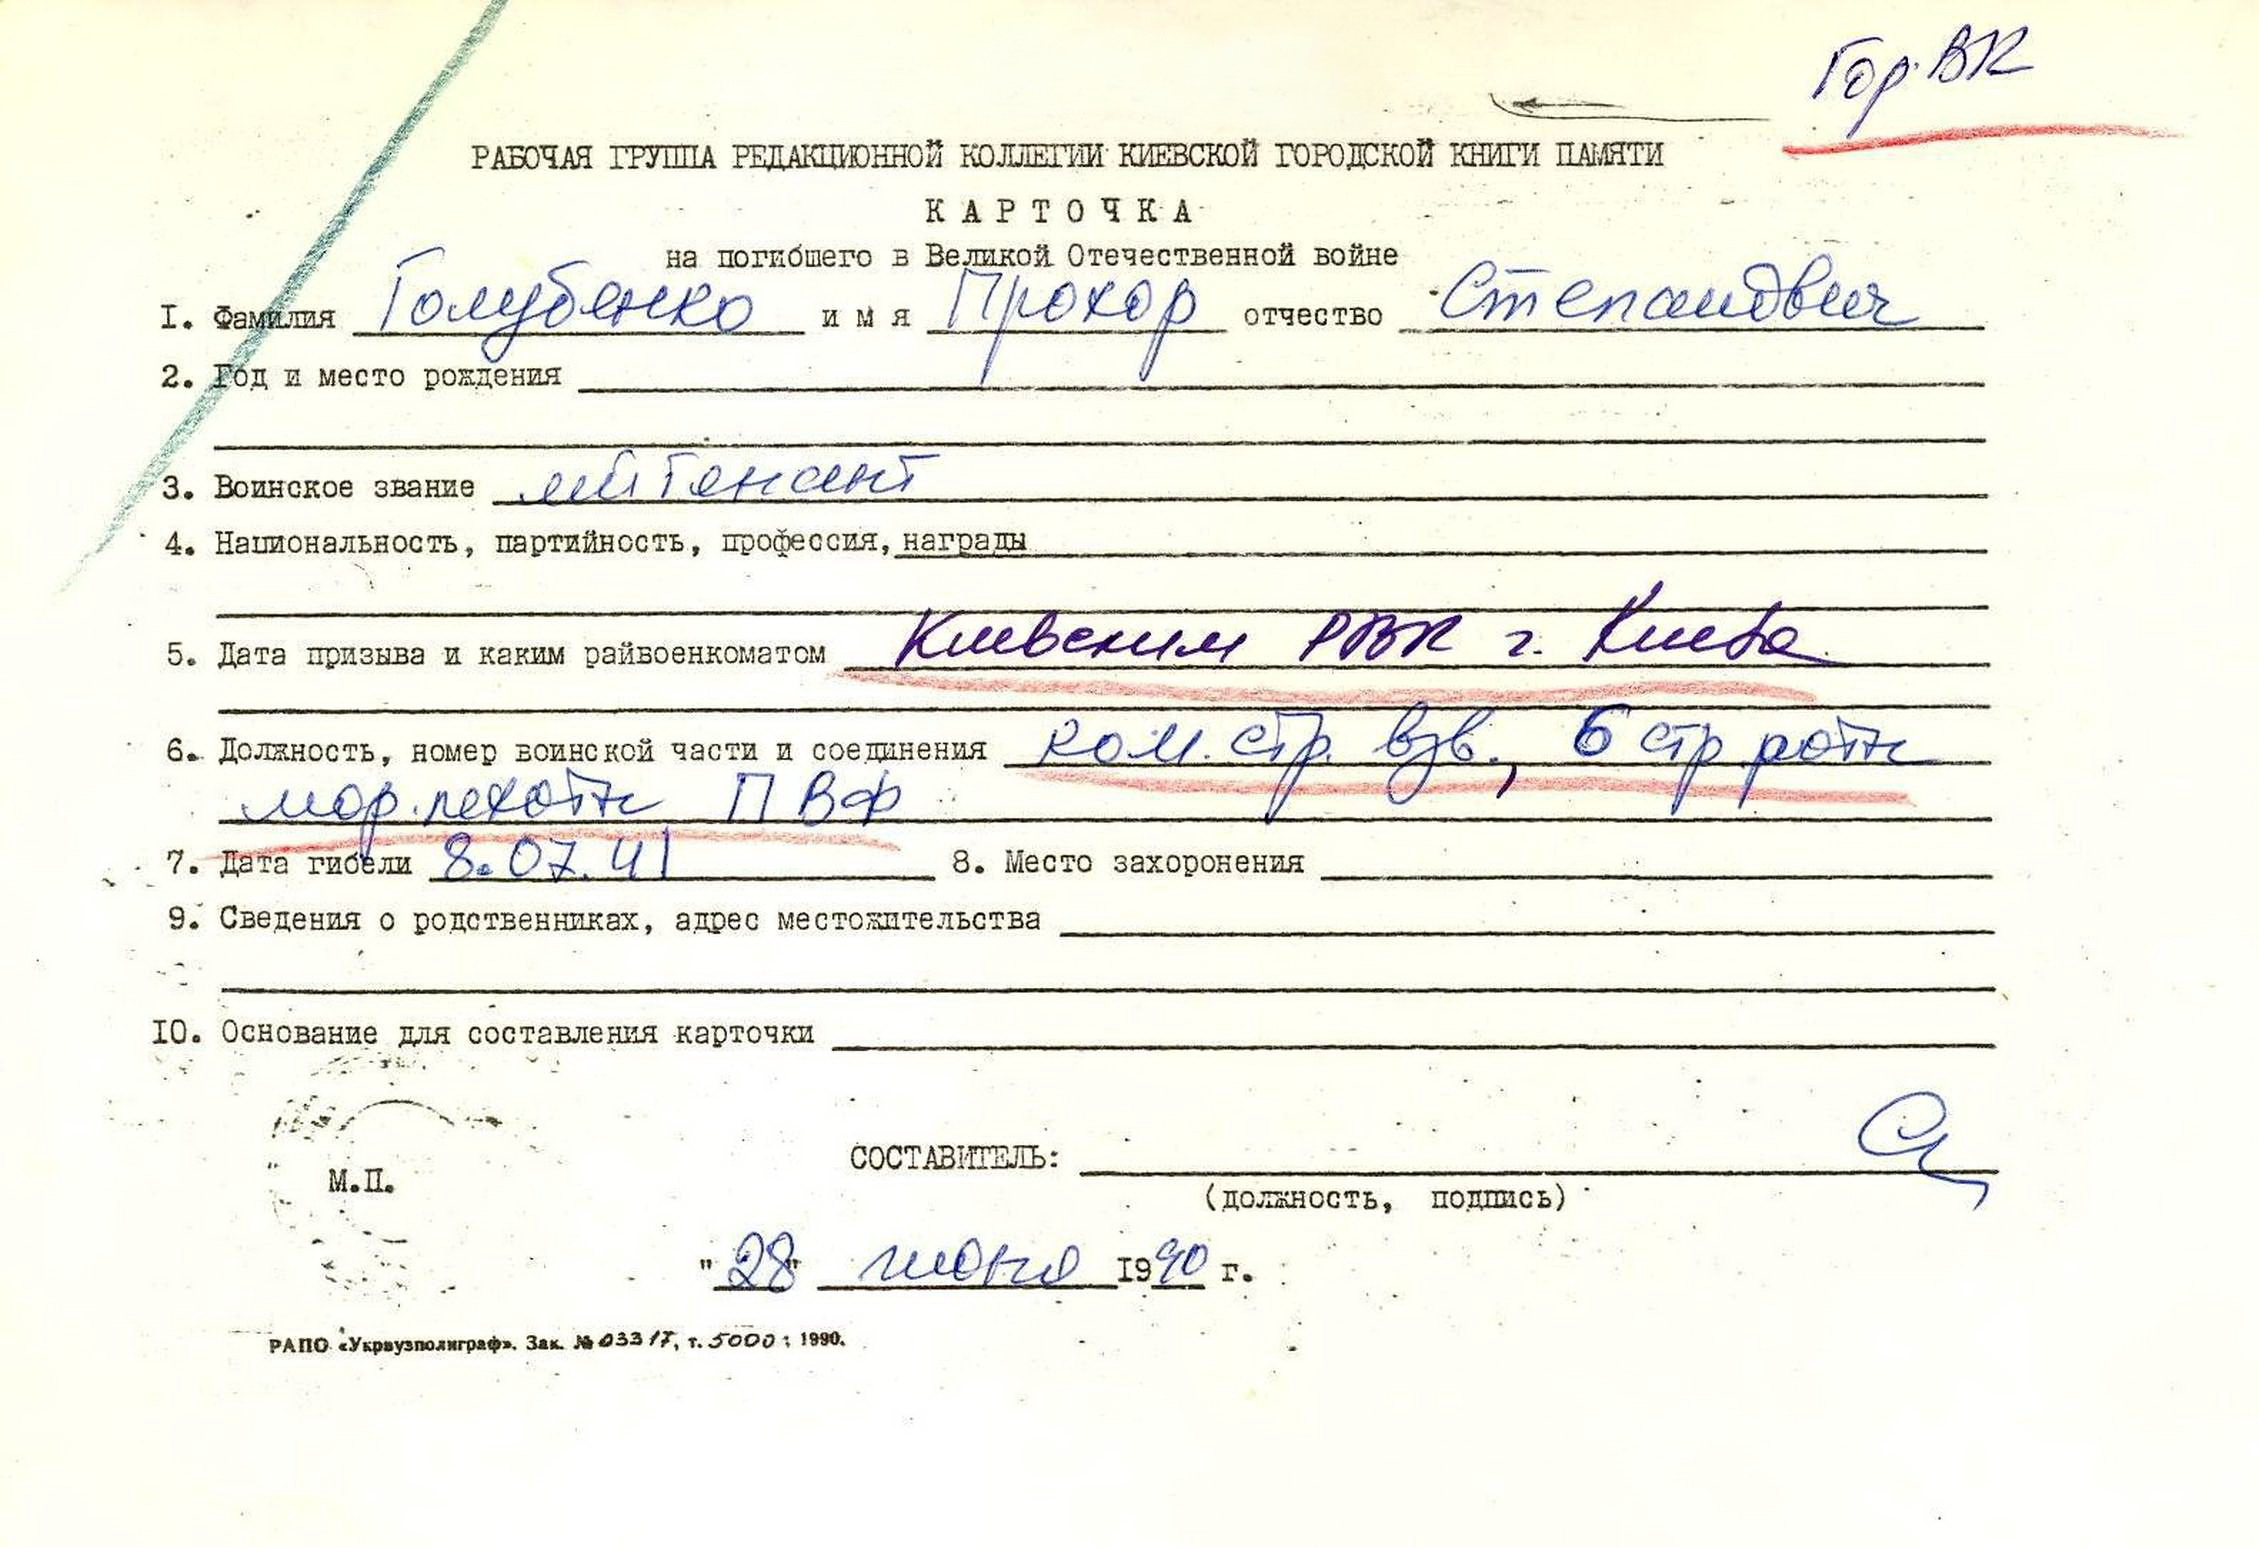 Гор. ВК
РАБОЧАЯ ГРУППА РЕДАКЦИОННОЙ КОЛЛЕГИИ КИЕВСКОЙ ГОРОДСКОЙ КНИГИ ПАМЯТИ
КАРТОЧКА
на погибшего в Великой Отечественной войне
1. Фамилия Голубенко имя Прохор отчество Степанович
2. Год и место рождения
3. Воинское звание лейтенант
4. Национальность, партийность, профессия, награды
5. Дата призыва и каким райвоенкоматом Киевским РВК г. Киева
6. Должность, номер воинской части и соединения ком. стр. взв., 6 стр роты
мор. пехоты ПВФ
7. Дата гибели 8.07.41 8. Место захоронения
9. Сведения о родственниках, адрес местожительства
10. Основание для составления карточки
СОСТАВИТЕЛЬ:
М.П.
(должность, подпись)
"28" июня 1990 г.
РАПО «Укрвузполиграф». Зак. № 03317, т. 5000; 1990.